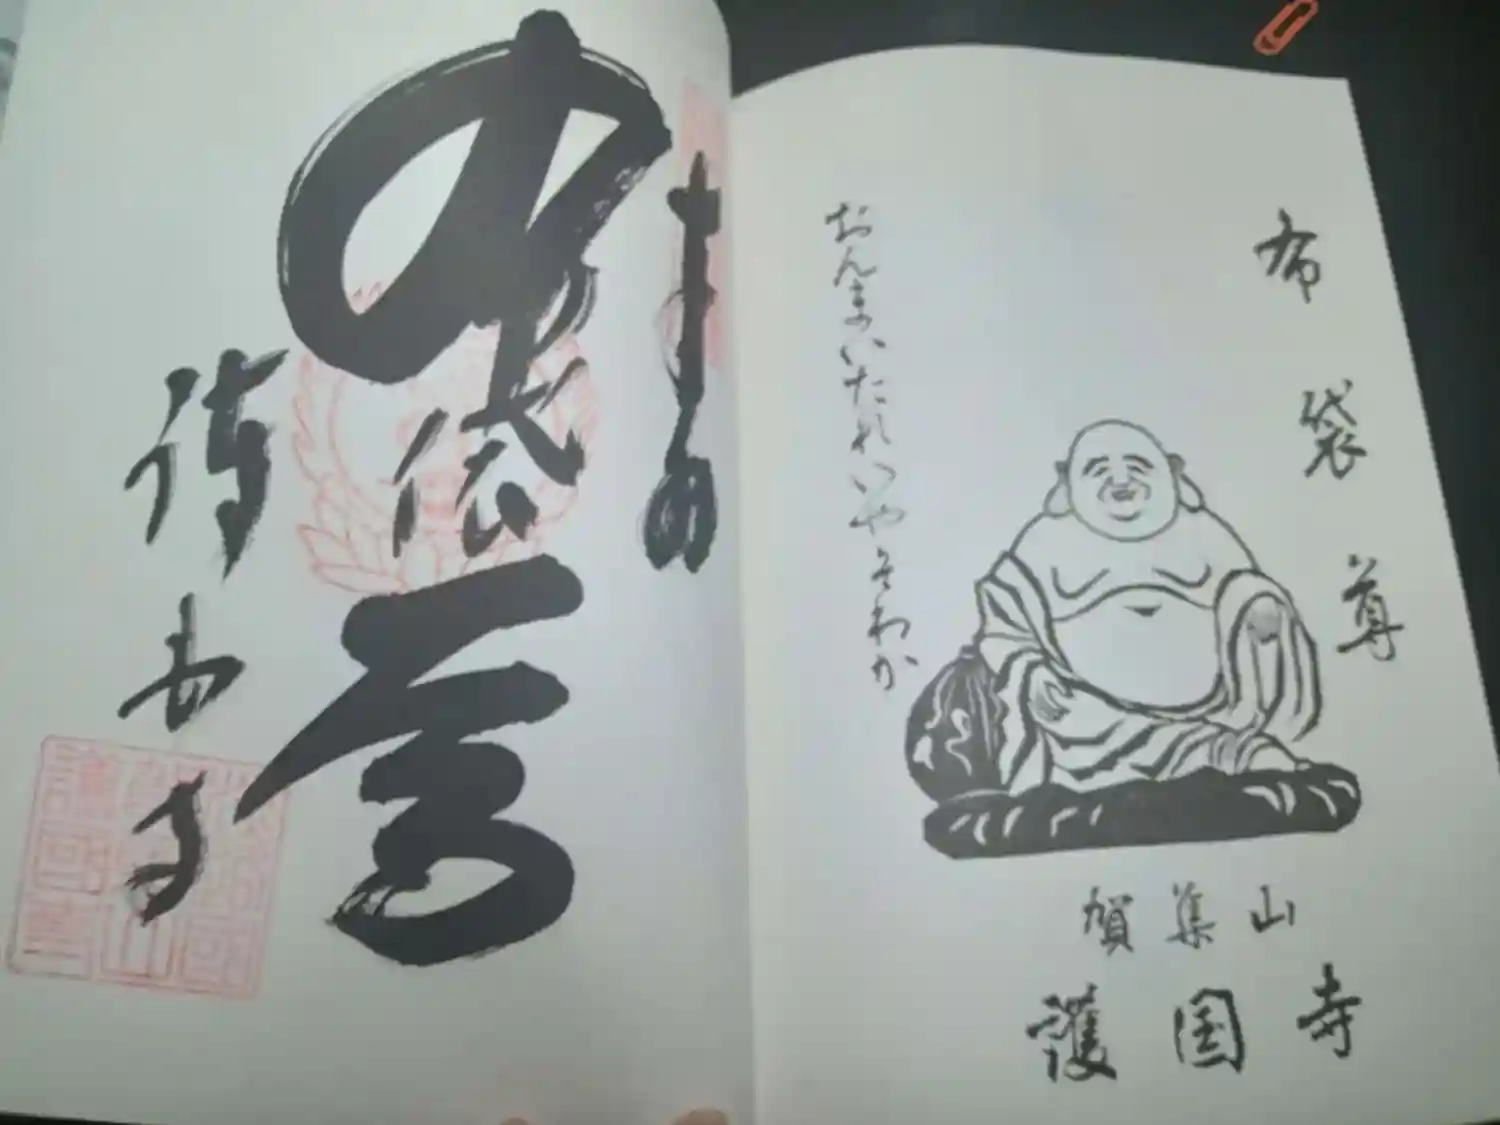 布袋尊
おんまいたれいやそわか
賀集山
護国寺
奉
布袋尊
護国寺